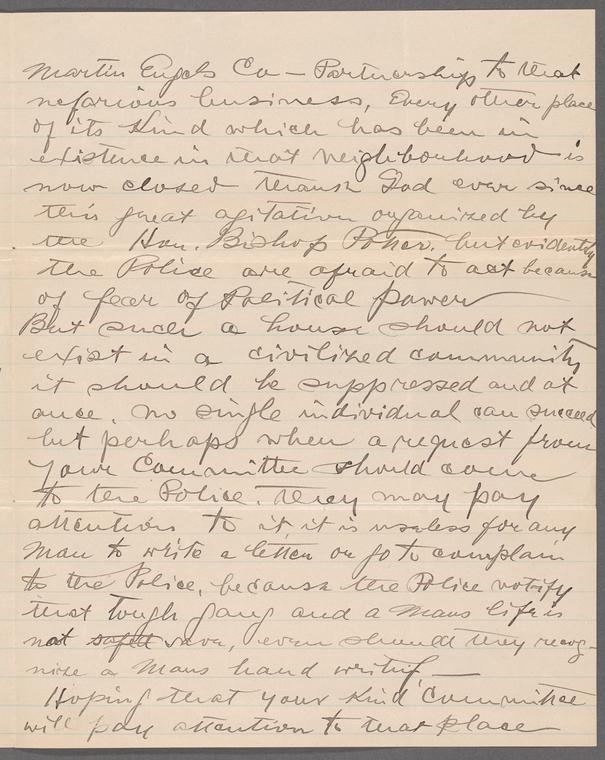 Martin Engels Co - Partnership to that
nefarious business, Every other place
of its Kind which has been in
existence in that neighbourhood is
now closed thank God ever since
this great agitation organized by
the Hon. Bishop Potter. but evidently
the Police are afraid to act because
of fear of Political power
But such a house should not
exist in a civilized community
it should be suppressed and at
once. no single individual can succeed
but perhaps when a request from
your Committee should come
to the Police. they may pay
attention to it, it is useless for any
Man to write a letter or go to complain
to the Police, because the Police notify
that tough gang and a Mans life is
not safe, even should they recog-
nize a Mans hand writing
Hoping that your Kind Committee
will pay attention to that place